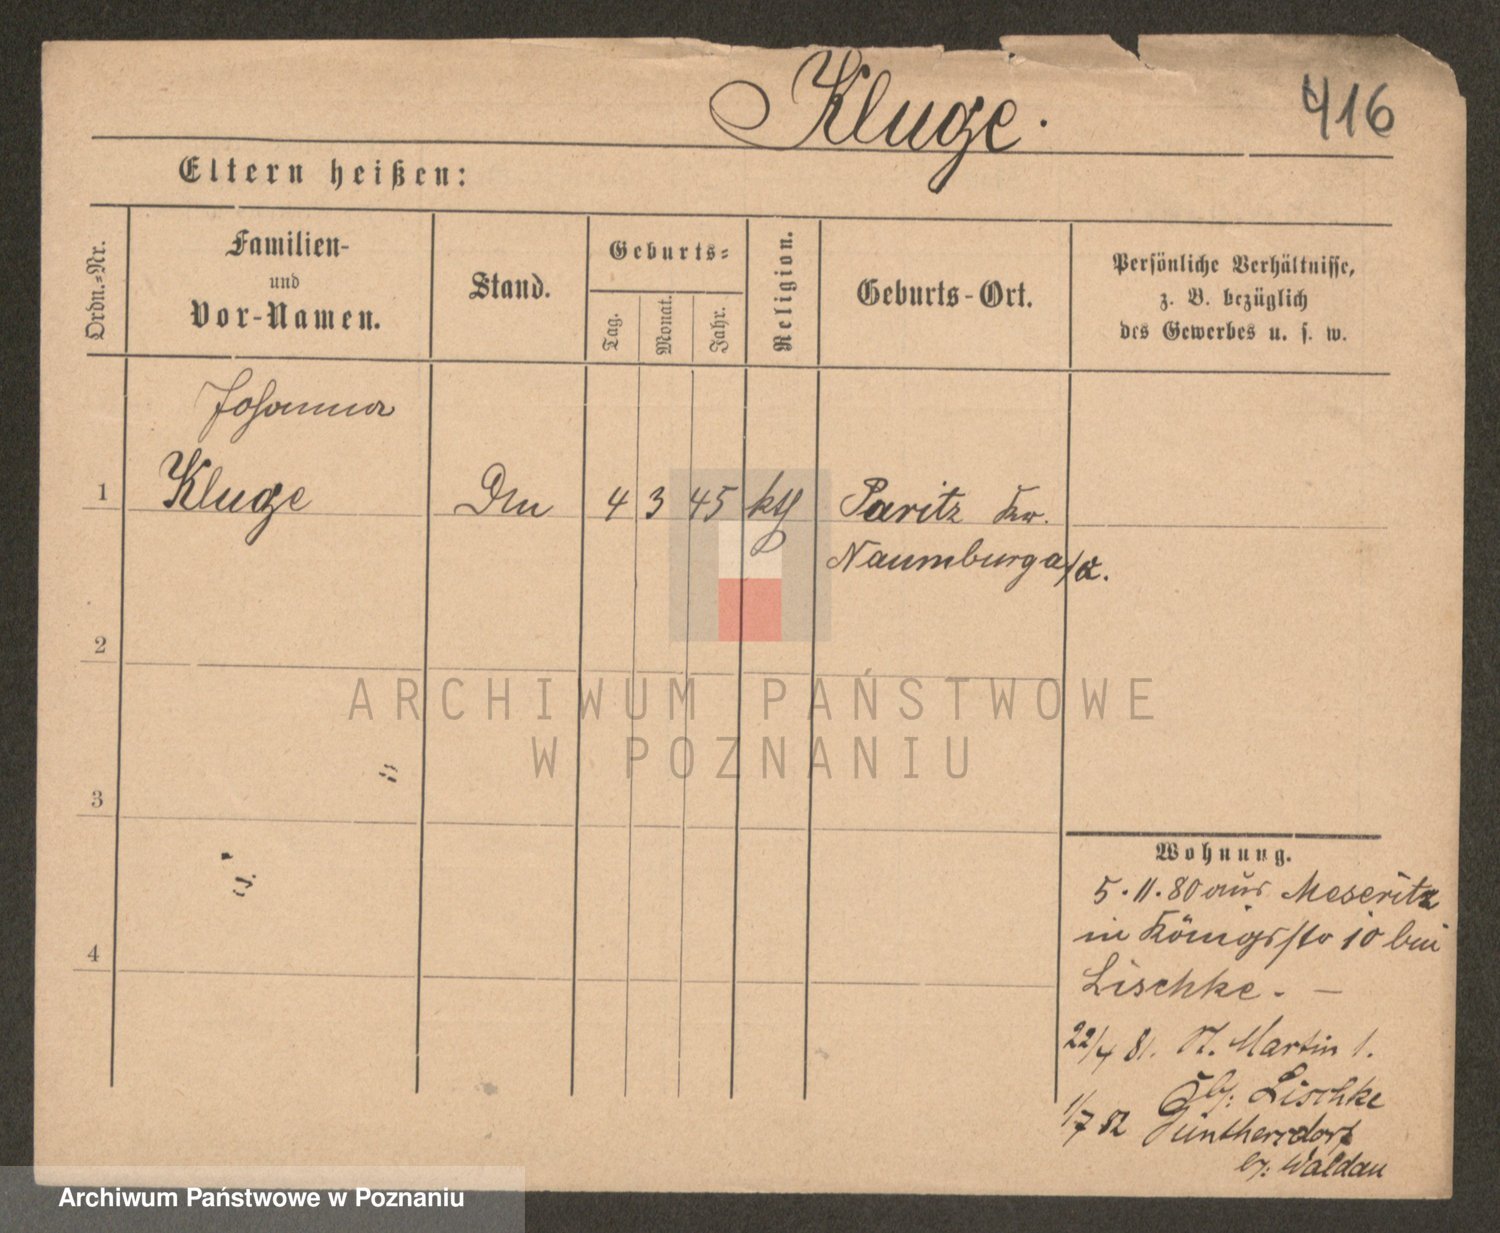 Kluge.
416
Eltern heißen:
Ordn.-Nr.
Familien-
und
Vor-Namen.
Stand.
Geburts-
Tag.
Monat.
Jahr.
Religion.
Geburts-Ort.
Persönliche Verhältnisse,
z. B. bezüglich
des Gewerbes u. s. w.
Johanna
1 Kluge 4 3 45 kth Paritz Kr.
Naumburg a/Q.
2
ARCHIWUM PAŃSTWOWE
W POZNANIU
3
4
Wohnung.
5.11.80 aus Meseritz
in Königsstr 10 bei
Lischke. —
22/4 81. St. Martin 1.
b/: Lischke
1/7 82 Günthersdorf
b/: Waldau
Archiwum Państwowe w Poznaniu